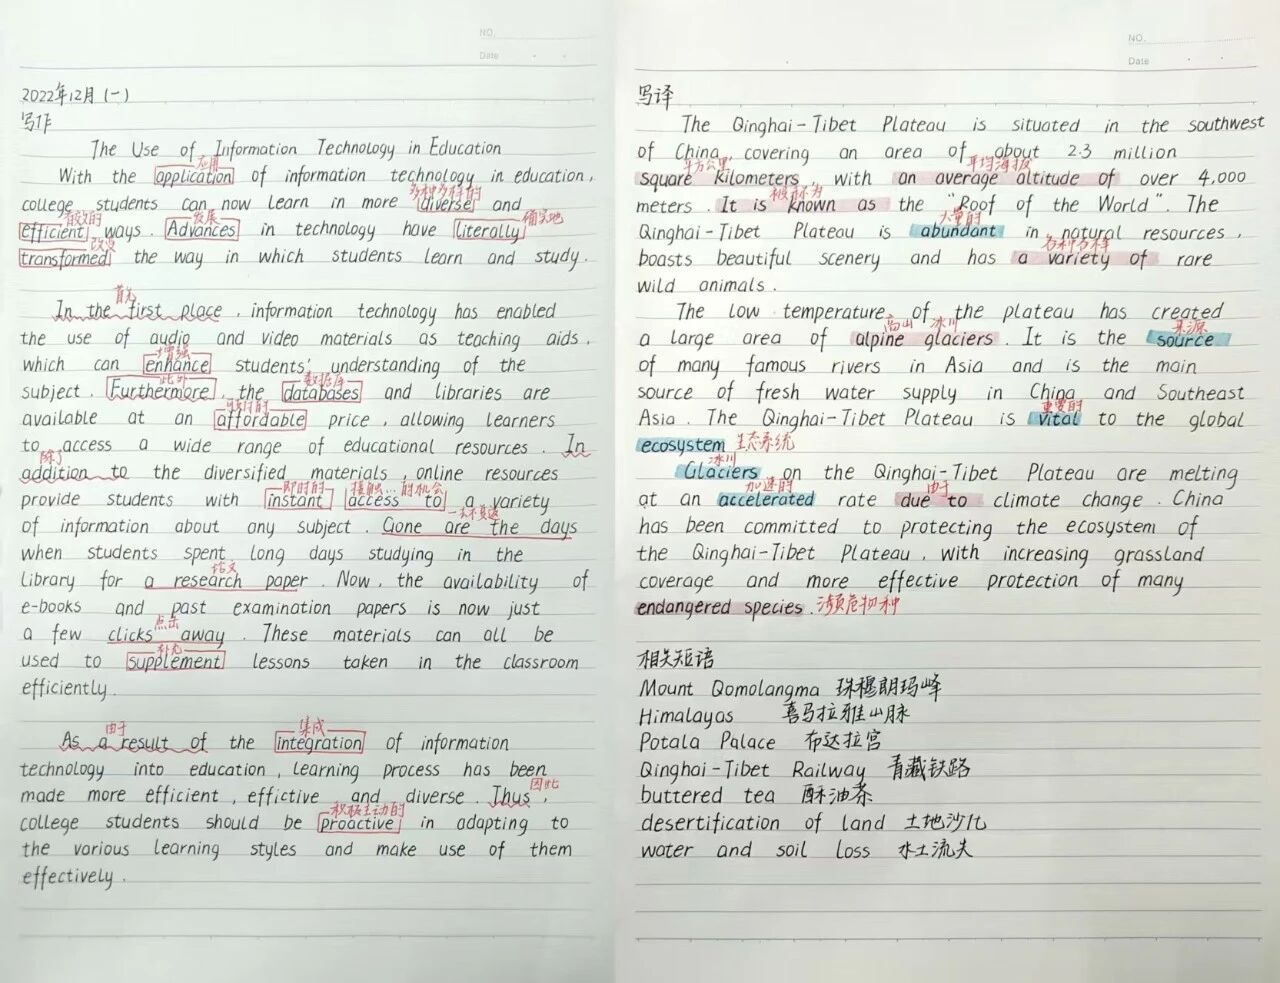 NO.
Date
2022年12月(一)
写作
The Use of Information Technology in Education
应用
With the application of information technology in education,
各种各样的
college students can now learn in more diverse and
有效的 发展 确实地
efficient ways. Advances in technology have literally
改变
transformed the way in which students learn and study.
首先
In the first place, information technology has enabled
the use of audio and video materials as teaching aids,
增强
which can enhance students' understanding of the
此外 数据库
subject. Furthermore, the databases and libraries are
available at an affordable price, allowing learners
to access a wide range of educational resources. In
除了
addition to the diversified materials, online resources
即时的 接触…的机会
provide students with instant access to a variety
一去不复返
of information about any subject. Gone are the days
when students spent long days studying in the
论文
library for a research paper. Now, the availability of
e-books and past examination papers is now just
点击
a few clicks away. These materials can all be
补充
used to supplement lessons taken in the classroom
efficiently.
由于 集成
As a result of the integration of information
technology into education, learning process has been
因此
made more efficient, effictive and diverse. Thus,
积极主动的
college students should be proactive in adapting to
the various learning styles and make use of them
effectively.
NO.
Date
写译
The Qinghai-Tibet Plateau is situated in the southwest
of China, covering an area of about 2.3 million
平方公里 平均海拔
square kilometers, with an average altitude of over 4,000
被称为
meters. It is known as the "Roof of the World". The
大量的
Qinghai-Tibet Plateau is abundant in natural resources,
各种各样
boasts beautiful scenery and has a variety of rare
wild animals.
The low temperature of the plateau has created
高山 冰川 来源
a large area of alpine glaciers. It is the source
of many famous rivers in Asia and is the main
source of fresh water supply in China and Southeast
重要的
Asia. The Qinghai-Tibet Plateau is vital to the global
ecosystem 生态系统
冰川
Glaciers on the Qinghai-Tibet Plateau are melting
加速的 由于
at an accelerated rate due to climate change. China
has been committed to protecting the ecosystem of
the Qinghai-Tibet Plateau, with increasing grassland
coverage and more effective protection of many
endangered species. 濒危物种
相关短语
Mount Qomolangma 珠穆朗玛峰
Himalayas 喜马拉雅山脉
Potala Palace 布达拉宫
Qinghai-Tibet Railway 青藏铁路
buttered tea 酥油茶
desertification of land 土地沙化
water and soil loss 水土流失